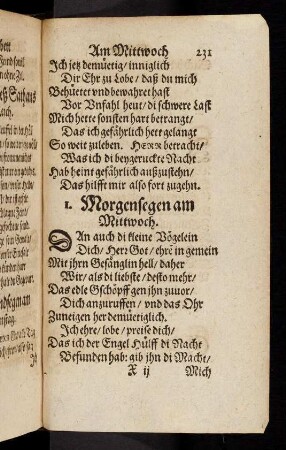 Am Mittwoch 231
Ich jetz demüetig/ inniglich
Dir Ehr zu Lobe/ daß du mich
Behüetet vnd bewahret hast
Vor Vnfahl heut/ di schwere Last
Mich hette sonsten hart betrangt/
Das ich gefährlich hett gelangt
So weit zuleben. HERR betracht/
Was ich di beygeruckte Nacht
Hab heint gefährlich außzustehn/
Das hilfft mir also fort zugehn.
1. Morgensegen am
Mittwoch.
SAn auch di kleine Vögelein
Dich/ Her: Got/ ehrē in gemein
Mit jhrn Gesänglin hell/ daher
Wir/ als di liebste/ desto mehr/
Das edle Gschöpff gen jhn zuuor/
Dich anzuruffen/ vnd das Ohr
Zuneigen her demüetiglich.
Ich ehre/ lobe/ preise dich/
Das ich der Engel Hülff di Nacht
Befunden hab: gib jhn di Macht/
X ij Mich